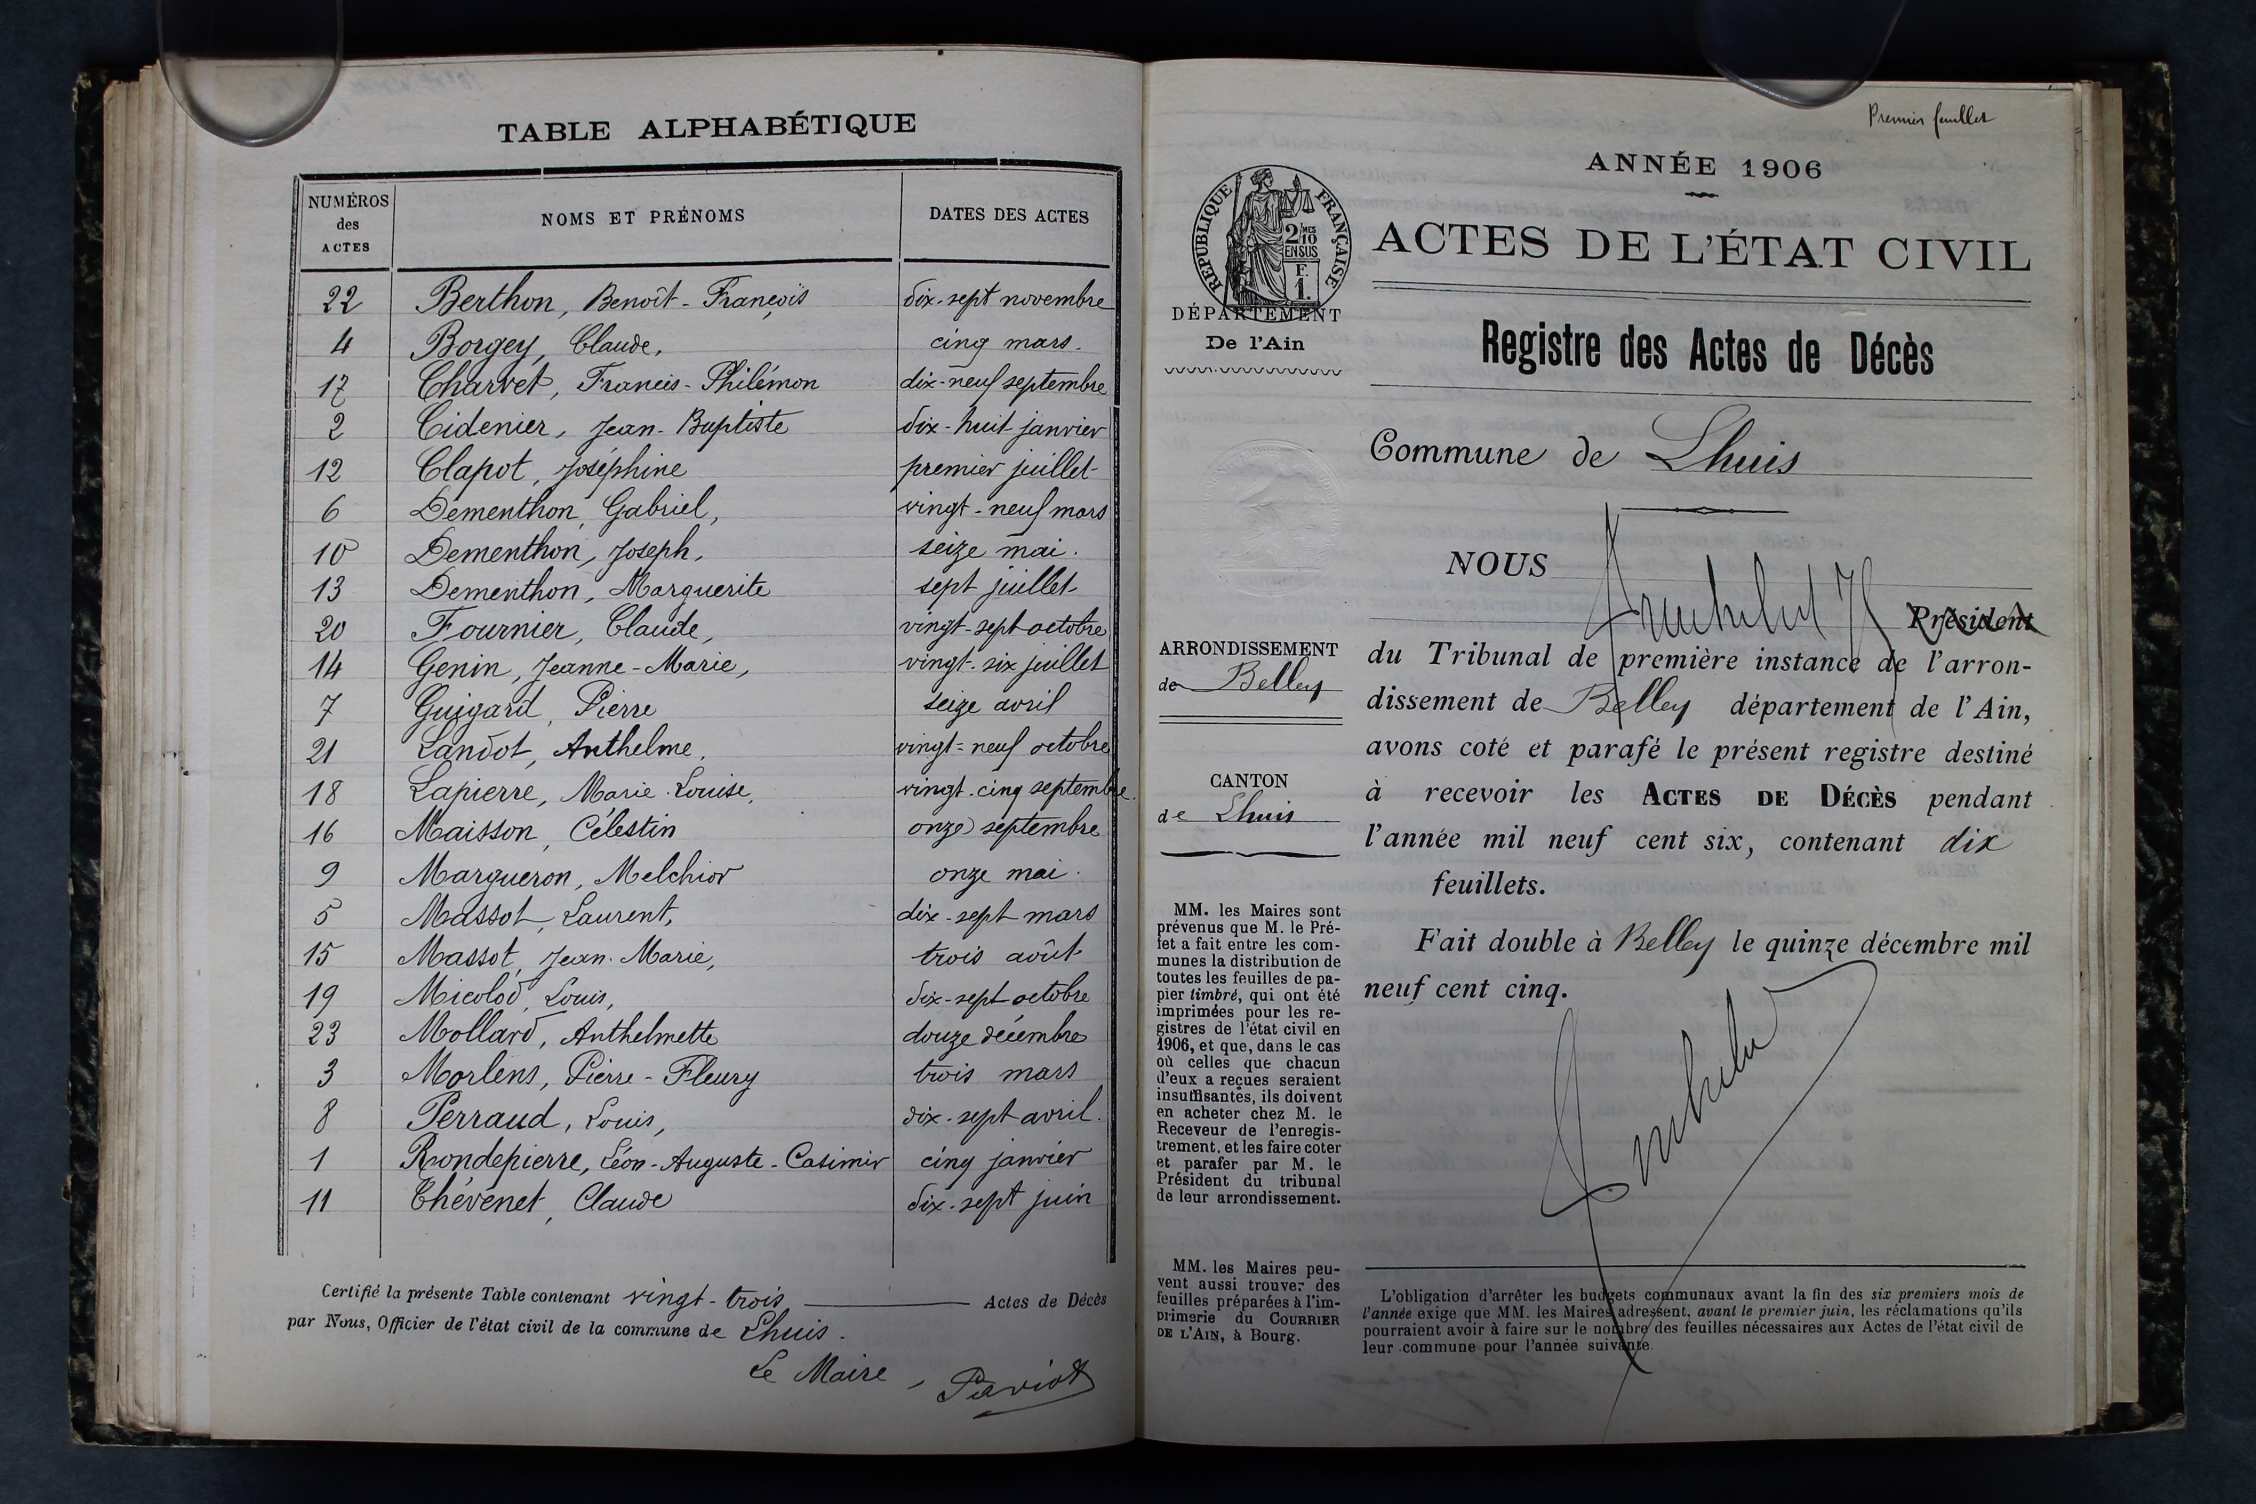 TABLE ALPHABÉTIQUE
NUMÉROS
des
ACTES
NOMS ET PRÉNOMS
DATES DES ACTES
22 Berthon, Benoît-François dix-sept novembre
4 Borgey, Claude, cinq mars.
17 Charvet, Francis-Philémon dix-neuf septembre
2 Cidenier, Jean-Baptiste dix-huit janvier
12 Clapot, Joséphine premier juillet
6 Dementhon, Gabriel, vingt-neuf mars
10 Dementhon, Joseph, seize mai.
13 Dementhon, Marguerite sept juillet
20 Fournier, Claude, vingt-sept octobre
14 Genin, Jeanne-Marie, vingt-six juillet
7 Guigard, Pierre seize avril
21 Landot, Anthelme, vingt-neuf octobre
18 Lapierre, Marie-Louise, vingt-cinq septembre.
16 Maisson, Célestin onze septembre
9 Margueron, Melchior onze mai.
5 Massot, Laurent, dix-sept mars
15 Massot, Jean-Marie, trois août
19 Micolod, Louis, dix-sept octobre
23 Mollard, Anthelmette douze décembre
3 Morlens, Pierre-Fleury trois mars
8 Perraud, Louis, dix-sept avril.
1 Rondepierre, Léon-Auguste-Casimir cinq janvier
11 Thévenet, Claude dix-sept juin
Certifié la présente Table contenant vingt-trois Actes de Décès
par Nous, Officier de l'état civil de la commune de Lhuis.
Le Maire,
Paviot
Premier feuillet
ANNÉE 1906
RÉPUBLIQUE FRANÇAISE
2/10 MES
EN SUS
F.
1.
DÉPARTEMENT
De l'Ain
ACTES DE L'ÉTAT CIVIL
Registre des Actes de Décès
Commune de Lhuis
NOUS
Président
du Tribunal de première instance de l'arron-
dissement de Belley département de l'Ain,
avons coté et parafé le présent registre destiné
à recevoir les ACTES DE DÉCÈS pendant
l'année mil neuf cent six, contenant dix
feuillets.
Fait double à Belley le quinze décembre mil
neuf cent cinq.
ARRONDISSEMENT
de Belley
CANTON
de Lhuis
MM. les Maires sont
prévenus que M. le Pré-
fet a fait entre les com-
munes la distribution de
toutes les feuilles de pa-
pier timbré, qui ont été
imprimées pour les re-
gistres de l'état civil en
1906, et que, dans le cas
où celles que chacun
d'eux a reçues seraient
insuffisantes, ils doivent
en acheter chez M. le
Receveur de l'enregis-
trement, et les faire coter
et parafer par M. le
Président du tribunal
de leur arrondissement.
MM. les Maires peu-
vent aussi trouver des
feuilles préparées à l'im-
primerie du COURRIER
DE L'AIN, à Bourg.
L'obligation d'arrêter les budgets communaux avant la fin des six premiers mois de
l'année exige que MM. les Maires adressent, avant le premier juin, les réclamations qu'ils
pourraient avoir à faire sur le nombre des feuilles nécessaires aux Actes de l'état civil de
leur commune pour l'année suivante.